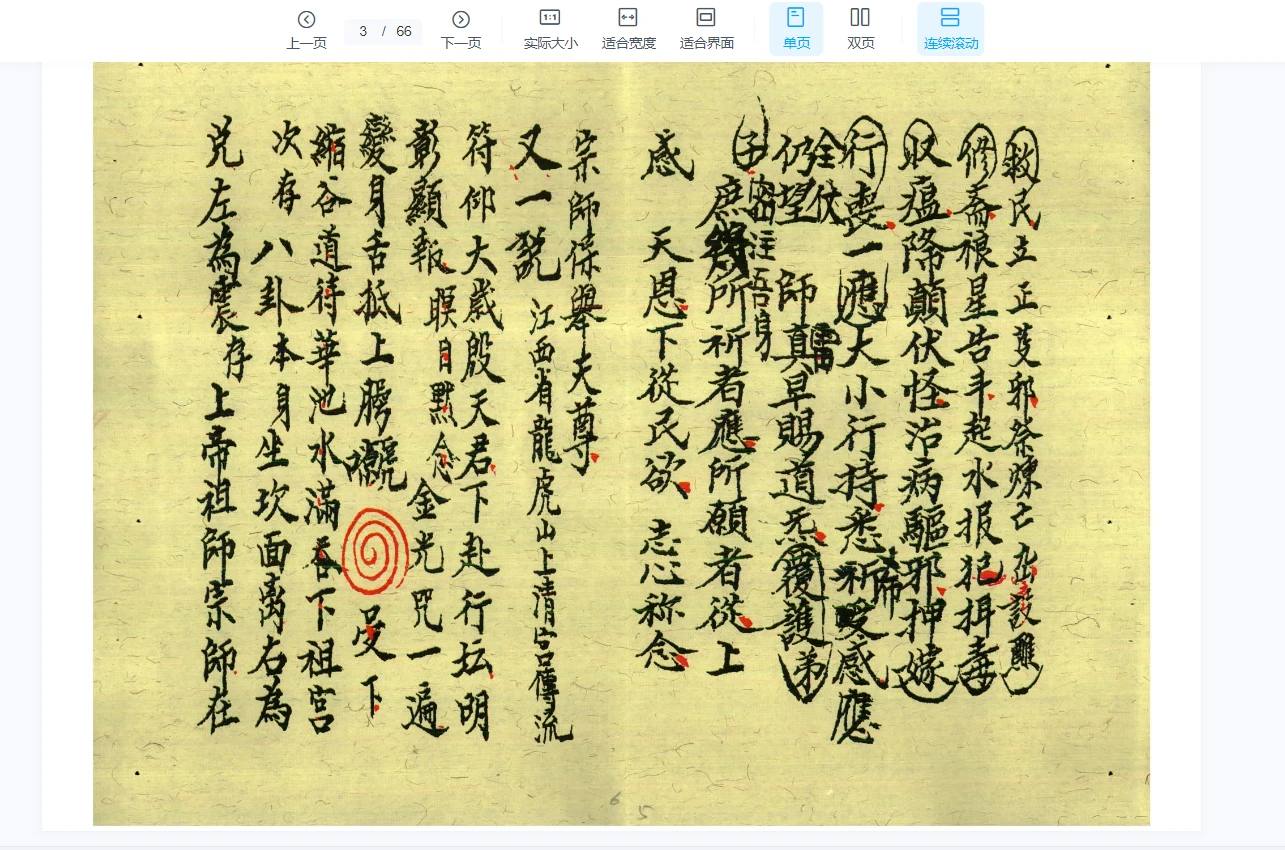 上一页 3 / 66 下一页 实际大小 适合宽度 适合界面 单页 双页 连续滚动
救民立正芟邪祭煉亡出設醮
修斎禳星告斗起水报犯揖毒
収瘟降顛伏怪治病驅邪押嫁
行喪一應大小行持悉祈帝受感應
全伏雷
仍望師真早賜道炁覆護弟
子密注吾身
庶得所祈者應所願者從上
感天恩下從民欲志心称念
宗師保舉天尊
又一説江西省龍虎山上清宫傳流
符仰大歲殷天君下赴行坛明
彰顯報瞑目默念金光咒一遍
變身舌抵上腭受下
縮谷道待華池水滿吞下祖宫
次存八卦本身坐坎面离右為
兑左為震存上帝祖師宗師在
6 5